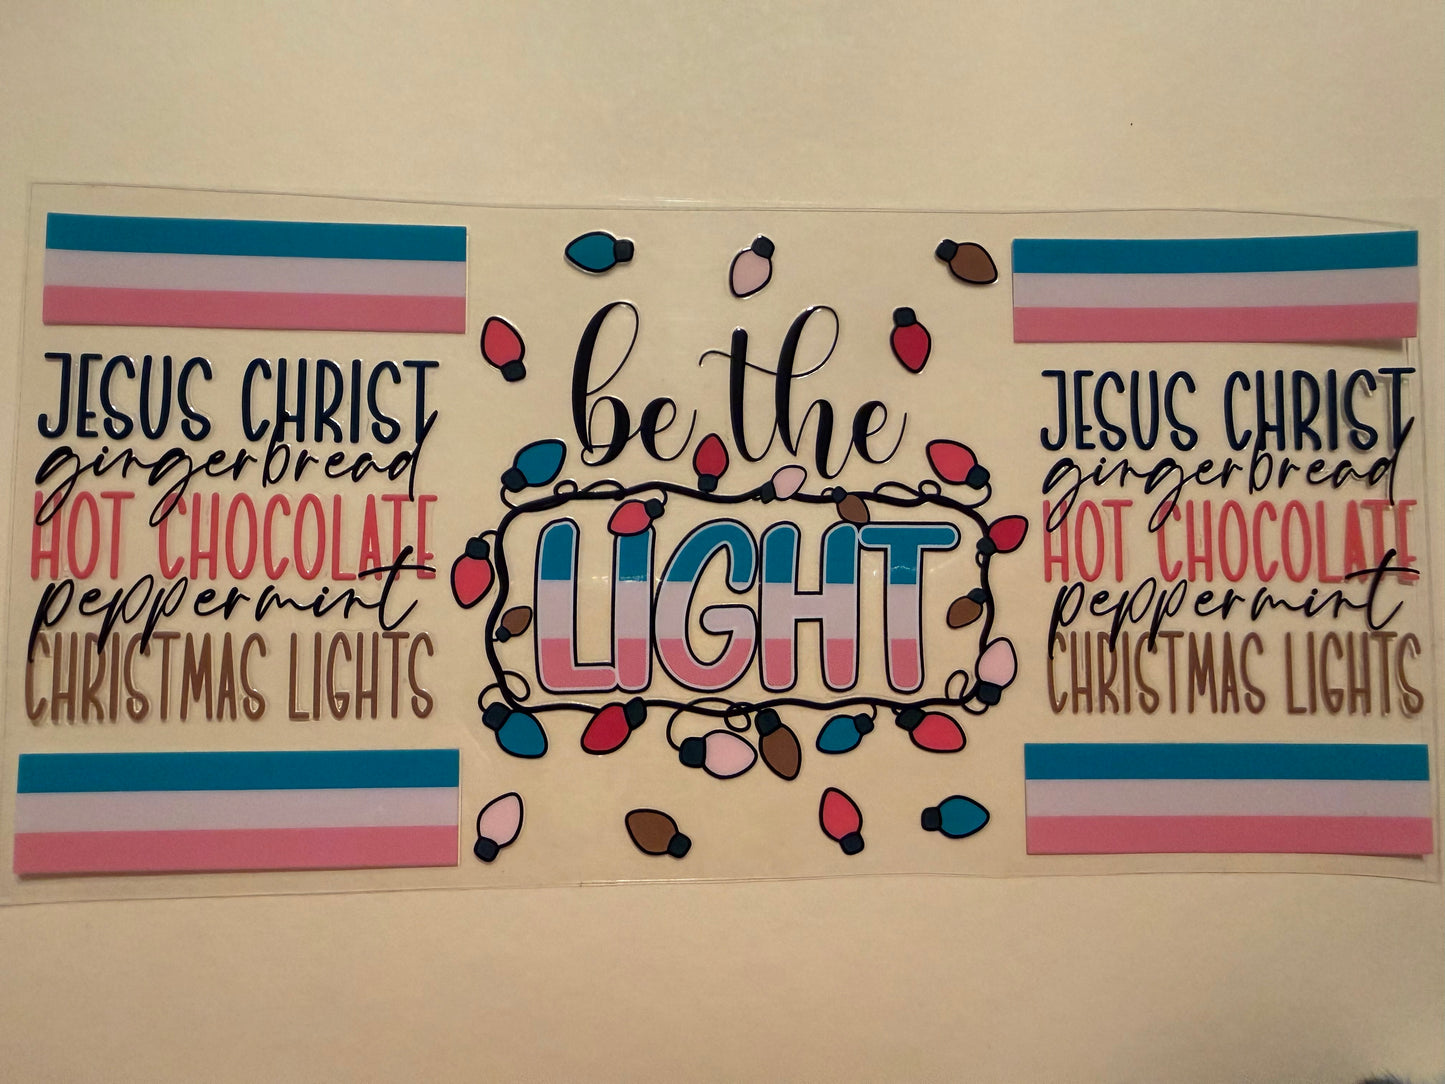 JESUS CHRIST
gingerbread
HOT CHOCOLATE
peppermint
CHRISTMAS LIGHTS
be the
LIGHT
JESUS CHRIST
gingerbread
HOT CHOCOLATE
peppermint
CHRISTMAS LIGHTS